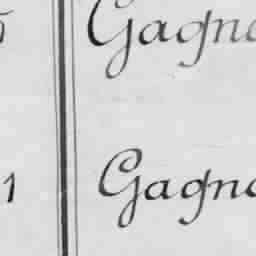 Gagn
1 Gagn